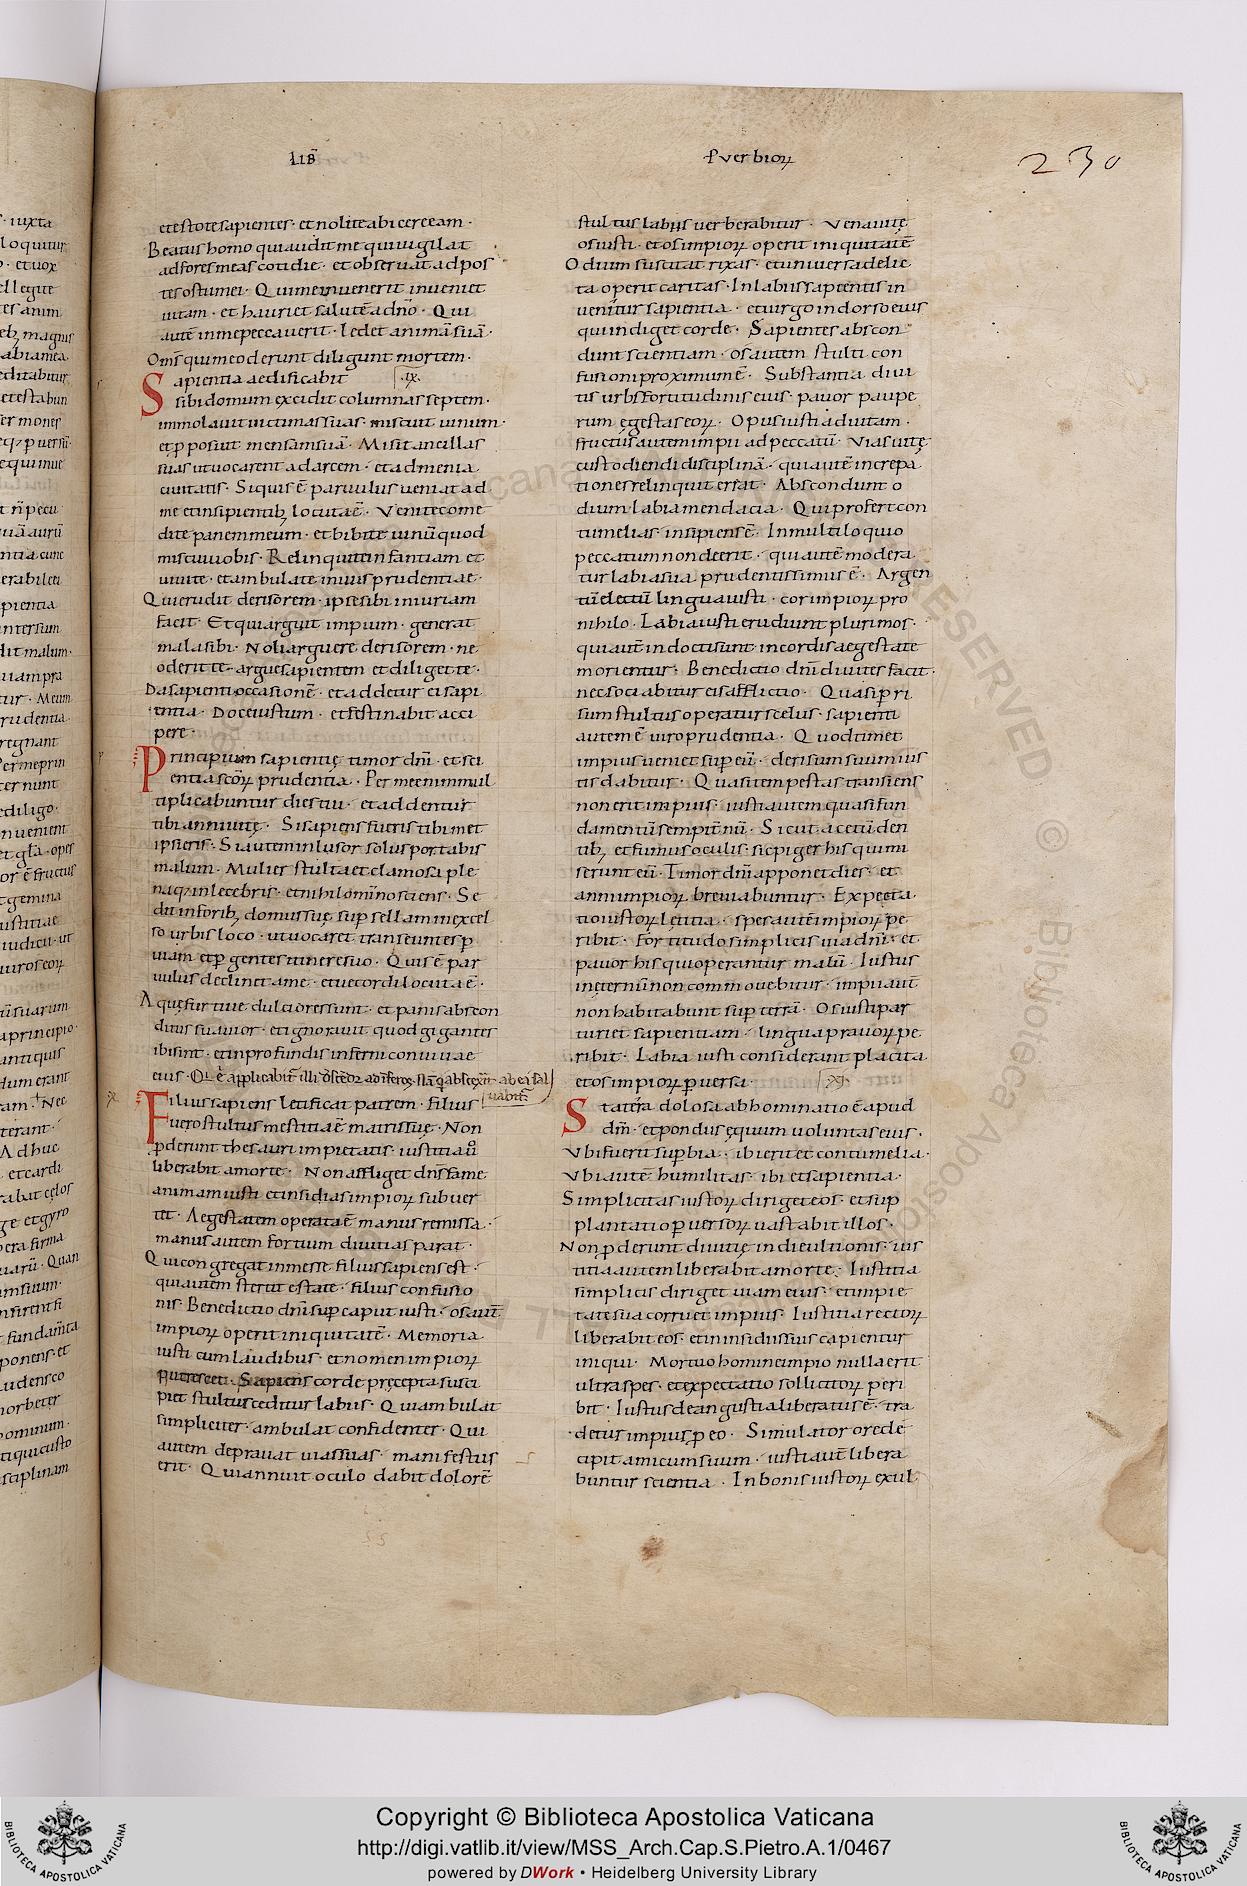 LIB̄
Pverbioꝝ
230
et estote sapientes · et nolite abicere eam ·
Beatus homo qui audit me qui uigilat
ad fores meas cotidie · et obseruat ad pos
tes ostii mei · Qui me inuenerit inueniet
uitam · et hauriet salutē a dn̄o · Qui
autē in me peccauerit · ledet animā suā ·
Om̄s qui me oderunt diligunt mortem ·
Sapientia aedificabit ·ix·
sibi domum excidit columnas septem ·
immolauit uictimas suas · miscuit uinum ·
et ꝓposuit mensam suā · Misit ancillas
suas ut uocarent ad arcem · et ad menia
ciuitatis · Si quis ē paruulus ueniat ad
me et insipientibꝫ locuta ē · Venite come
dite panem meum · et bibite uinū quod
miscui uobis · Relinquite infantiam et
uiuite · et ambulate in uiis prudentiae ·
Qui erudit derisorem · ipse sibi iniuriam
facit · Et qui arguit impium · generat
mala sibi · Noli arguere derisorem · ne
oderit te · argue sapientem et diliget te ·
Da sapienti occasionē · et addetur ei sapi
entia · Doce iustum · et festinabit acci
pere ·
Principium sapientię timor dn̄i · et sci
entia scōꝝ prudentia · Per me enim mul
tiplicabuntur dies tui · et addentur
tibi anni uitę · Si sapiens fueris tibimet
ipsi eris · Si autem inlusor solus portabis
malum · Mulier stulta et clamosa ple
naqꝫ inlecebris · et nihil omīno sciens · Se
dit in foribꝫ domus suę suꝑ sellam in excel
so urbis loco · ut uocaret transeuntes ꝑ
uiam et ꝑgentes itinere suo · Quis ē par
uulus declinet a me · et uecordi locuta ē ·
Aquę furtiue dulciores sunt · et panis abscon
ditus suauior · et ignorauit quod gigantes
ibi sint · et in profundis inferni conuiuae
eius ·
Filius sapiens letificat patrem · filius
uero stultus mestitia ē matris suę · Non
ꝓderunt thesauri impietatis · iustitia uͦ
liberabit a morte · Non affliget dn̄s fame
animam iusti et insidias impioꝝ subuer
tet · Aegestatem operata ē manus remissa ·
manus autem fortium diuitias parat ·
Qui congregat in messe filius sapiens est ·
qui autem stertit estate · filius confusio
nis · Benedictio dn̄i suꝑ caput iusti · os aut̄
impioꝝ operit iniquitatē · Memoria
iusti cum laudibus · et nomen impioꝝ
putrescet · Sapiens corde pręcepta susci
piet stultus ceditur labiis · Qui ambulat
simpliciter · ambulat confidenter · Qui
autem deprauat uias suas · manifestus
erit · Qui annuit oculo dabit dolorē
stultus labiis uerberabitur · Vena uitę
os iusti · et os impioꝝ operit iniquitatē
Odium suscitat rixas · et uniuersa delic
ta operit caritas · In labiis sapientis in
uenitur sapientia · et uirga in dorso eius
qui indiget corde · Sapientes abscon
dunt scientiam · os autem stulti con
fusioni proximum ē · Substantia diui
tis urbs fortitudinis eius · pauor paupe
rum egestas eoꝝ · Opus iusti ad uitam ·
fructus autem impii ad peccatū · Via uitę
custodiendi disciplinā · qui autē increpa
tiones relinquit errat · Abscondunt o
dium labia mendacia · Qui profert con
tumelias · insipiens ē · In multiloquio
peccatum non deerit · qui autē modera
tur labia sua prudentissimus ē · Argen
tū electū lingua iusti · cor impioꝝ pro
nihilo · Labia iusti erudiunt plurimos ·
qui aut̄ indocti sunt in cordis aegestate
morientur · Benedictio dn̄i diuites facit ·
nec sociabitur eis afflictio · Quasi ꝑ ri
sum stultus operatur scelus · sapientia
autem ē uiro prudentia · Quod timet
impius ueniet suꝑ eū · desiderium suum ius
tis dabitur · Quasi tempestas transiens
non erit impius · iusti autem quasi fun
damentū sempit̄nū · Sicut acetū den
tibꝫ et fumus oculis · sic piger his qui mi
serunt eū · Timor dn̄i apponet dies · et
anni impioꝝ breuiabuntur · Expecta
tio iustoꝝ lętitia · spes autē impioꝝ pe
ribit · Fortitudo simplicis uia dn̄i · et
pauor his qui operantur malū · Iustus
in ęternū non commouebitur · impii aut̄
non habitabunt suꝑ terrā · Os iusti par
turiet sapientiam · lingua prauoꝝ pe
ribit · Labia iusti considerant placita
et os impioꝝ ꝑuersa · XI·
Statera dolosa abhominatio ē apud
dn̄m · et pondus ęquum uoluntas eius ·
Vbi fuerit suꝑbia · ibi erit et contumelia ·
Vbi autē humilitas · ibi et sapientia ·
Simplicitas iustoꝝ diriget eos · et sup
plantatio ꝑuersoꝝ uastabit illos ·
Non ꝓderunt diuitię in die ultionis · ius
titia autem liberabit a morte · Iustitia
simplicis diriget uiam eius · et impie
tate sua corruet impius · Iustitia rectoꝝ
liberabit eos · et in insidiis suis capientur
iniqui · Mortuo homine impio nulla erit
ultra spes · et expectatio sollicitoꝝ peri
bit · Iustus de angustia liberatus ē · tra
detur impius ꝑ eo · Simulator ore de
cipit amicum suum · iusti aut̄ libera
buntur scientia · In bonis iustoꝝ exul
Copyright © Biblioteca Apostolica Vaticana
http://digi.vatlib.it/view/MSS_Arch.Cap.S.Pietro.A.1/0467
powered by DWork • Heidelberg University Library